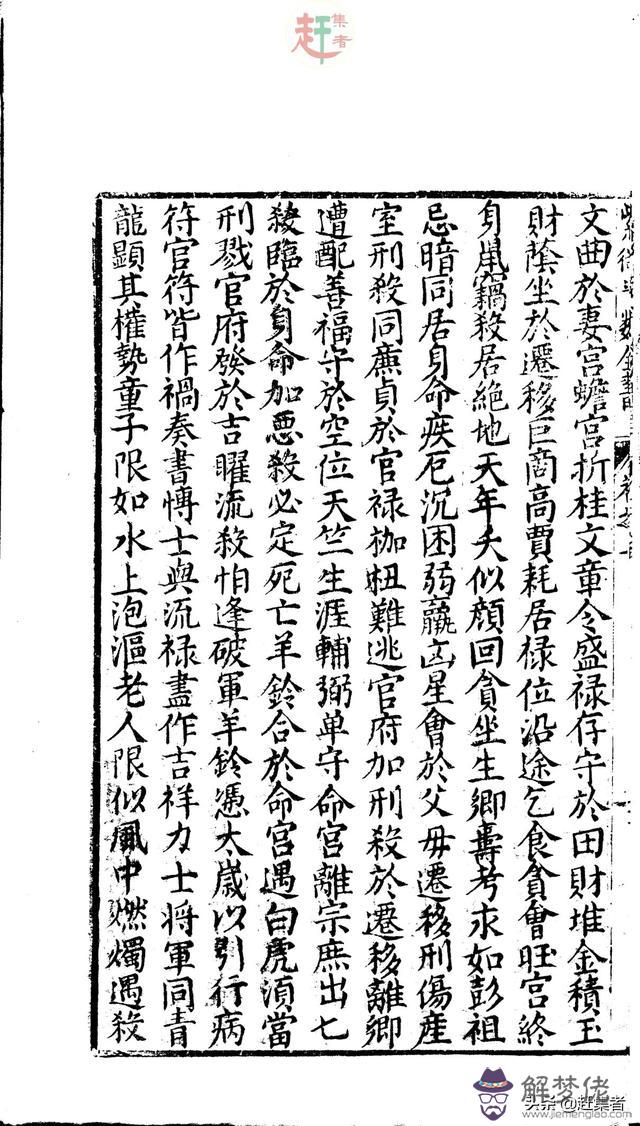 赶集者
文曲於妻宮蟾宮折桂文章令盛禄存守於田財堆金積玉
財蔭坐於遷移巨商高賈耗居禄位沿途乞食貪會旺宮終
身鼠竊殺居絶地天年夭似顔回貪坐生鄉壽考求如彭祖
忌暗同居身命疾厄沉困弱羸凶星會於父毋遷移刑傷産
室刑殺同廉貞於官禄枷杻難逃官府加刑殺於遷移離鄉
遭配善福守於空位天竺生涯輔弼单守命宮離宗庶出七
殺臨於身命加惡殺必定死亡羊鈴合於命宮遇白虎須當
刑戮官府發於吉曜流殺怕逢破軍羊鈴憑太歲以引行病
符官符皆作禍奏書愽士與流禄盡作吉祥力士将軍同青
龍顯其權勢童子限如水上泡漚老人限似風中燃燭遇殺
解梦佬
www.jiemenglao.com
头条@赶集者